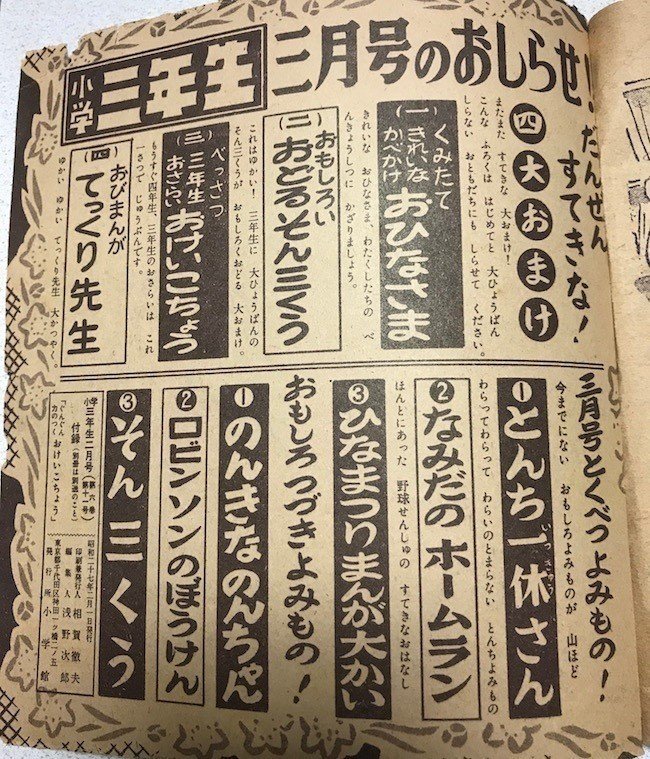 小学三年生 三月号のおしらせ!
だんぜん
すてきな!
四大おまけ
またまた すてきな 大おまけ!
こんな ふろくは はじめてと 大ひょうばん
しらない おともだちにも しらせて ください。
(一) くみたて
きれいな
かべかけ
おひなさま
きれいな おひなさま、わたくしたちの べ
んきょうしつに かざりましょう。
(二) おもしろい
おどるそん三くう
これはゆかい! 三年生に 大ひょうばんの
そん三くうが おもしろくおどる 大おまけ。
(三) べっさつ
三年生
おさらい
おけいこちょう
もうすぐ四年生、三年生のおさらいは これ
一さつで じゅうぶんです。
(四) おびまんが
てっくり先生
ゆかい ゆかい てっくり先生 大かつやく。
三月号とくべつよみもの!
今までにない おもしろよみものが 山ほど
❶とんち一休さん
いっきゅう
わらってわらって わらいのとまらない とんちよみもの
❷なみだのホームラン
ほんとにあった 野球せんしゅの すてきなおはなし
❸ひなまつりまんが大かい
おもしろつづきよみもの!
❶のんきなのんちゃん
❷ロビンソンのぼうけん
❸そん三くう
小学三年生二月号 第六巻 第十一号
付録 (別冊は別途のこと)
「ぐんぐん
力のつく おけいこちょう」
昭和二十七年二月一日発行
印刷兼発行人 相賀徹夫
編集人 浅野次郎
東京都千代田区神田一ツ橋二ノ五
発行所 小学館